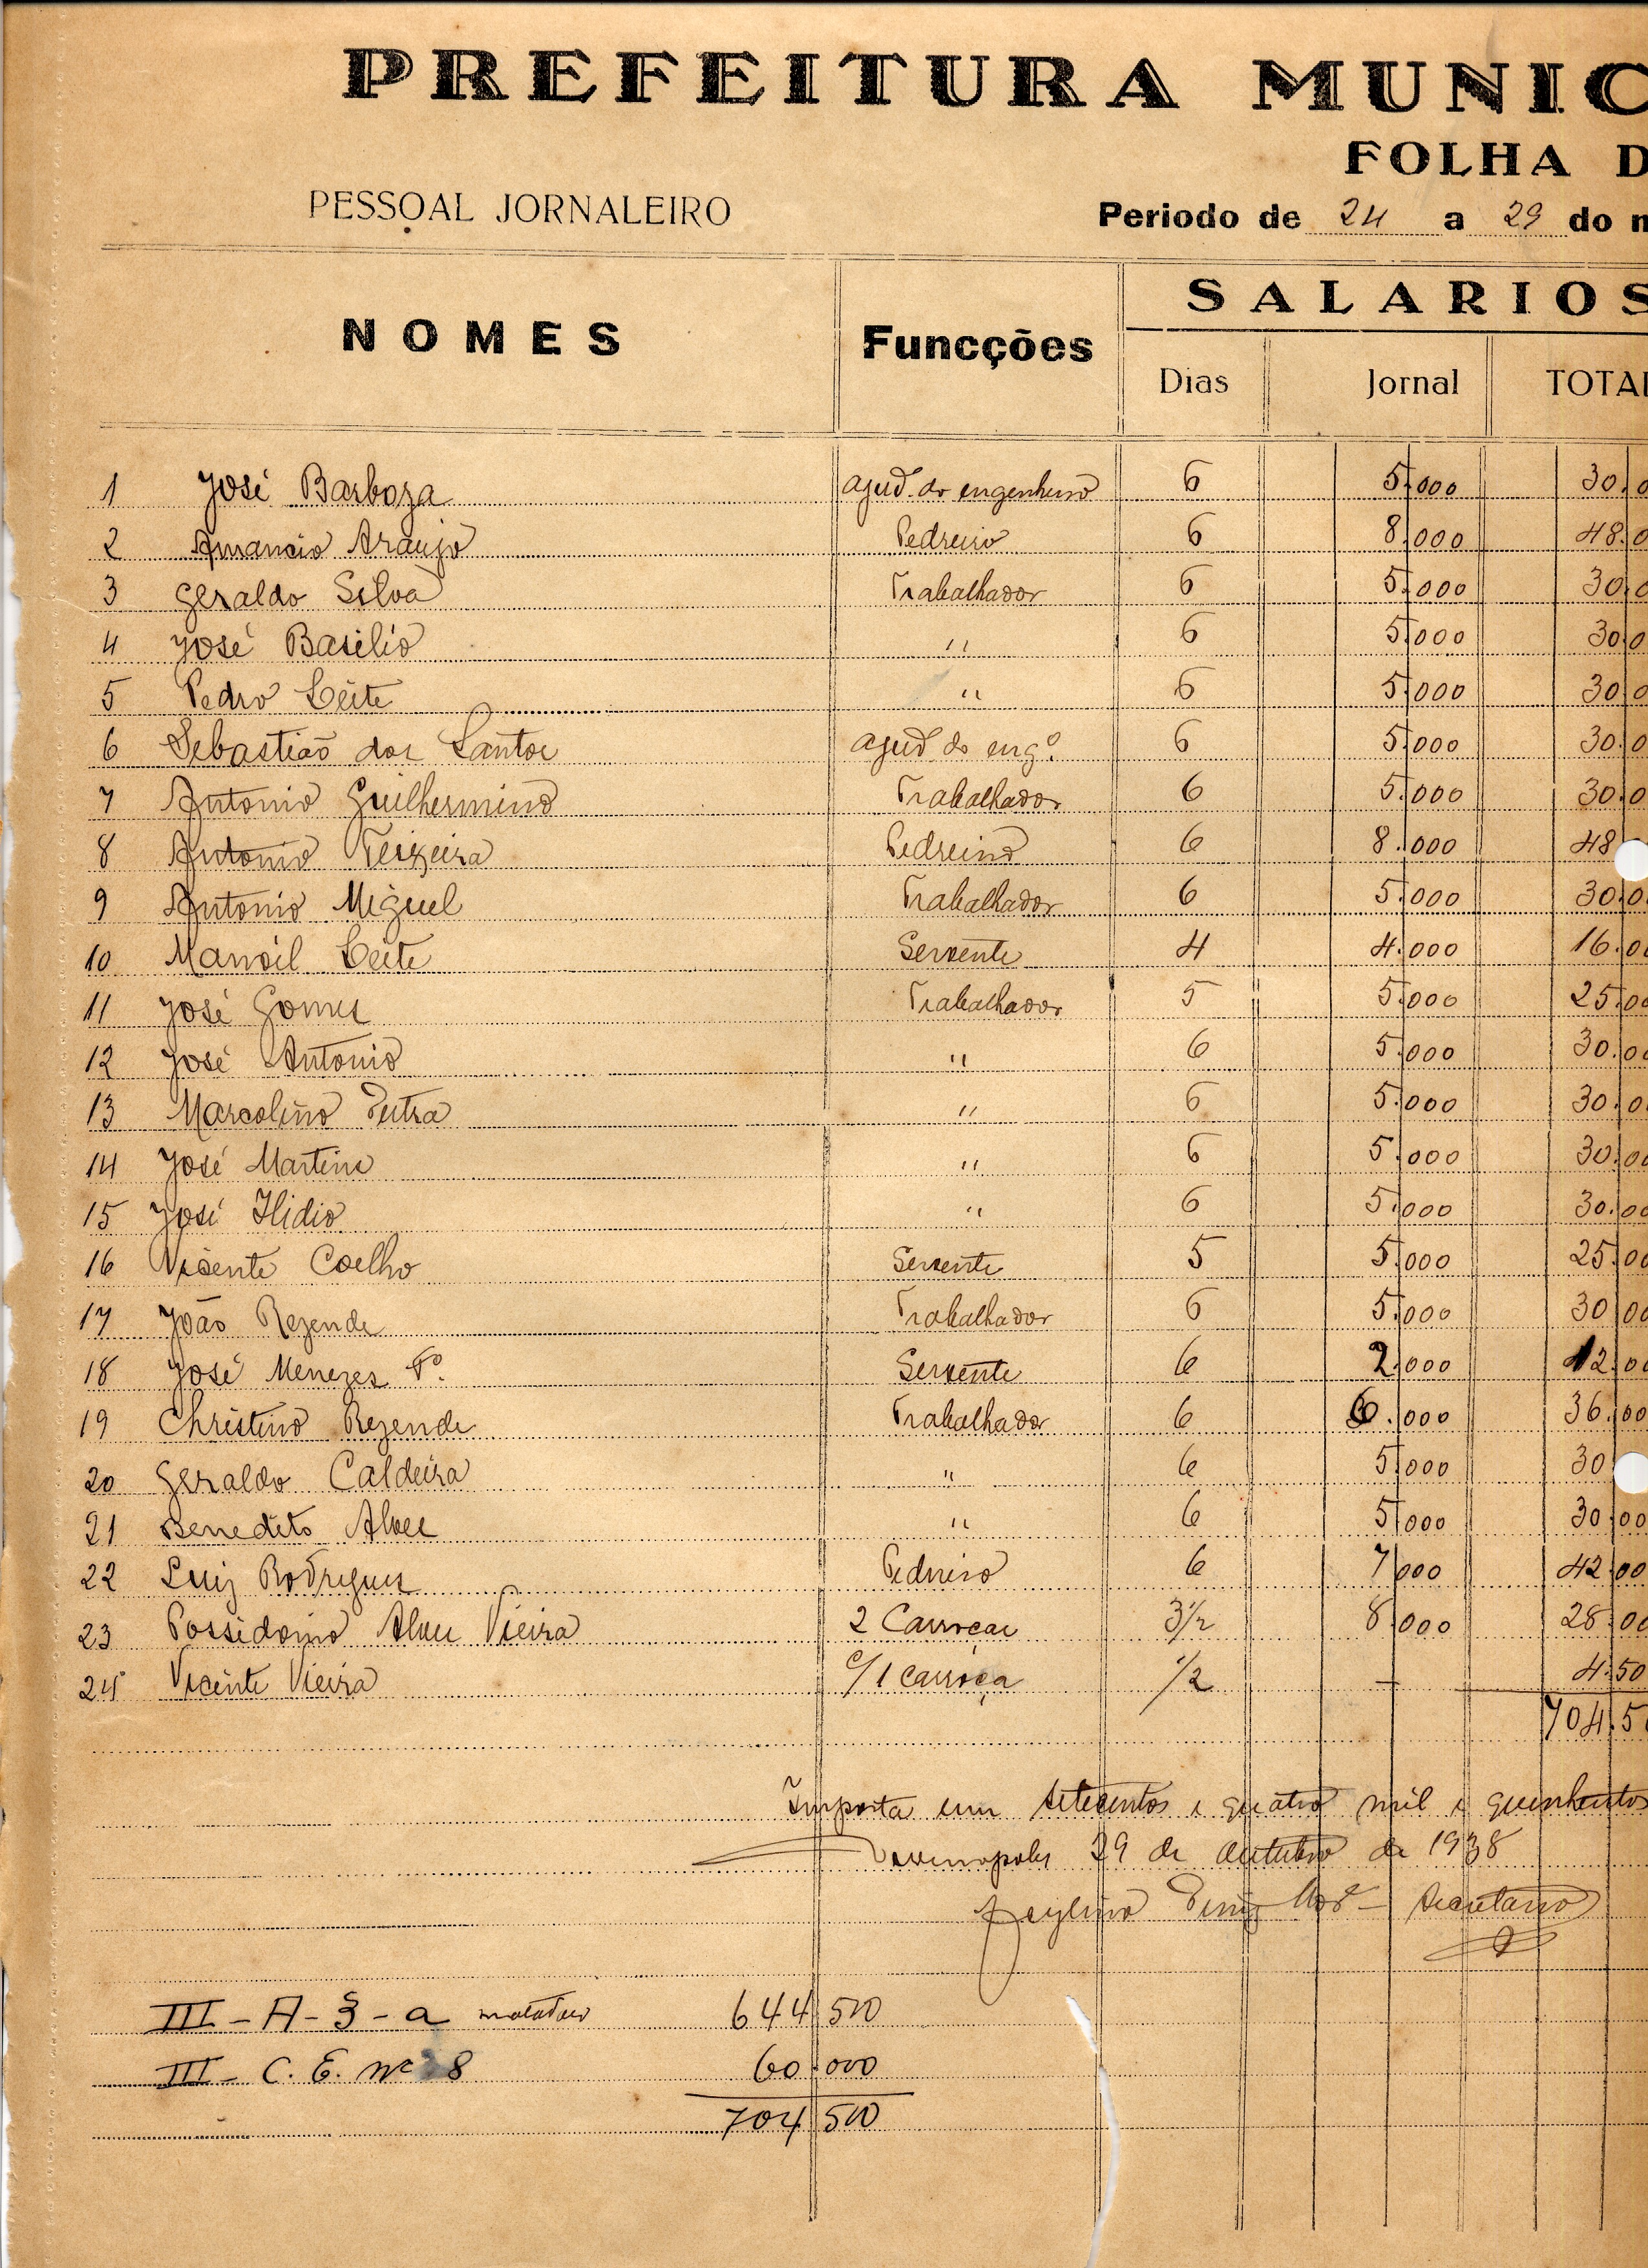 PREFEITURA MUNIC
FOLHA D
PESSOAL JORNALEIRO
Periodo de 24 a 29 do m
NOMES Funcções SALARIOS
Dias Jornal TOTAL
1 José Barboza ajud. do engenheiro 6 5.000 30.0
2 Amancio Araujo Pedreiro 6 8.000 48.0
3 Geraldo Silva Trabalhador 6 5.000 30.0
4 José Basilio " 6 5.000 30.0
5 Pedro Leite " 6 5.000 30.0
6 Sebastião dos Santos ajud do engº. 6 5.000 30.0
7 Antonio Guilhermino Trabalhador 6 5.000 30.0
8 Antonio Teixeira Pedreiro 6 8.000 48
9 Antonio Miguel Trabalhador 6 5.000 30.0
10 Manoel Leite Servente 4 4.000 16.00
11 José Gomes Trabalhador 5 5.000 25.00
12 José Antonio " 6 5.000 30.00
13 Marcolino " 6 5.000 30.0
14 José Martins " 6 5.000 30.00
15 José Ilidio " 6 5.000 30.00
16 Vicente Coelho Servente 5 5.000 25.00
17 João Rezende Trabalhador 6 5.000 30.00
18 José Menezes Fº. Servente 6 2.000 12.00
19 Christino Rezende Trabalhador 6 6.000 36.00
20 Geraldo Caldeira " 6 5.000 30
21 Benedito Alves " 6 5.000 30.00
22 Luiz Rodrigues Pedreiro 6 7.000 42.00
23 Possidonio Alves Vieira 2 Carroças 3 1/2 8.000 28.00
24 Vicente Vieira c/ 1 carroça 1/2 — 4.50
704.5
Importa em setecentos e quatro mil e quinhentos
29 de outubro de 1938
Secretario
III - A - 3 - a 644.500
III - C. E. nº 8 60.000
704.500